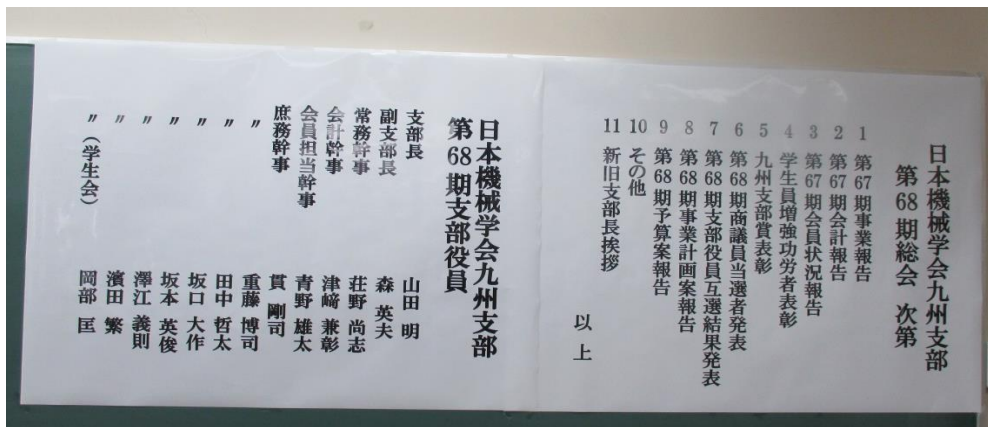 日本機械学会九州支部
第68期総会 次第
1 第67期事業報告
2 第67期会計報告
3 第67期会員状況報告
4 学生員増強功労者表彰
5 九州支部賞表彰
6 第68期商議員当選者発表
7 第68期支部役員互選結果発表
8 第68期事業計画案報告
9 第68期予算案報告
10 その他
11 新旧支部長挨拶
以上
日本機械学会九州支部
第68期支部役員
支部長 山田 明
副支部長 森 英夫
常務幹事 荘野 尚志
会計幹事 津﨑 兼彰
会員担当幹事 青野 雄太
庶務幹事 貫 剛司
〃 重藤 博司
〃 田中 哲太
〃 坂口 大作
〃 坂本 英俊
〃 澤江 義則
〃 濱田 繁
〃(学生会) 岡部 匡